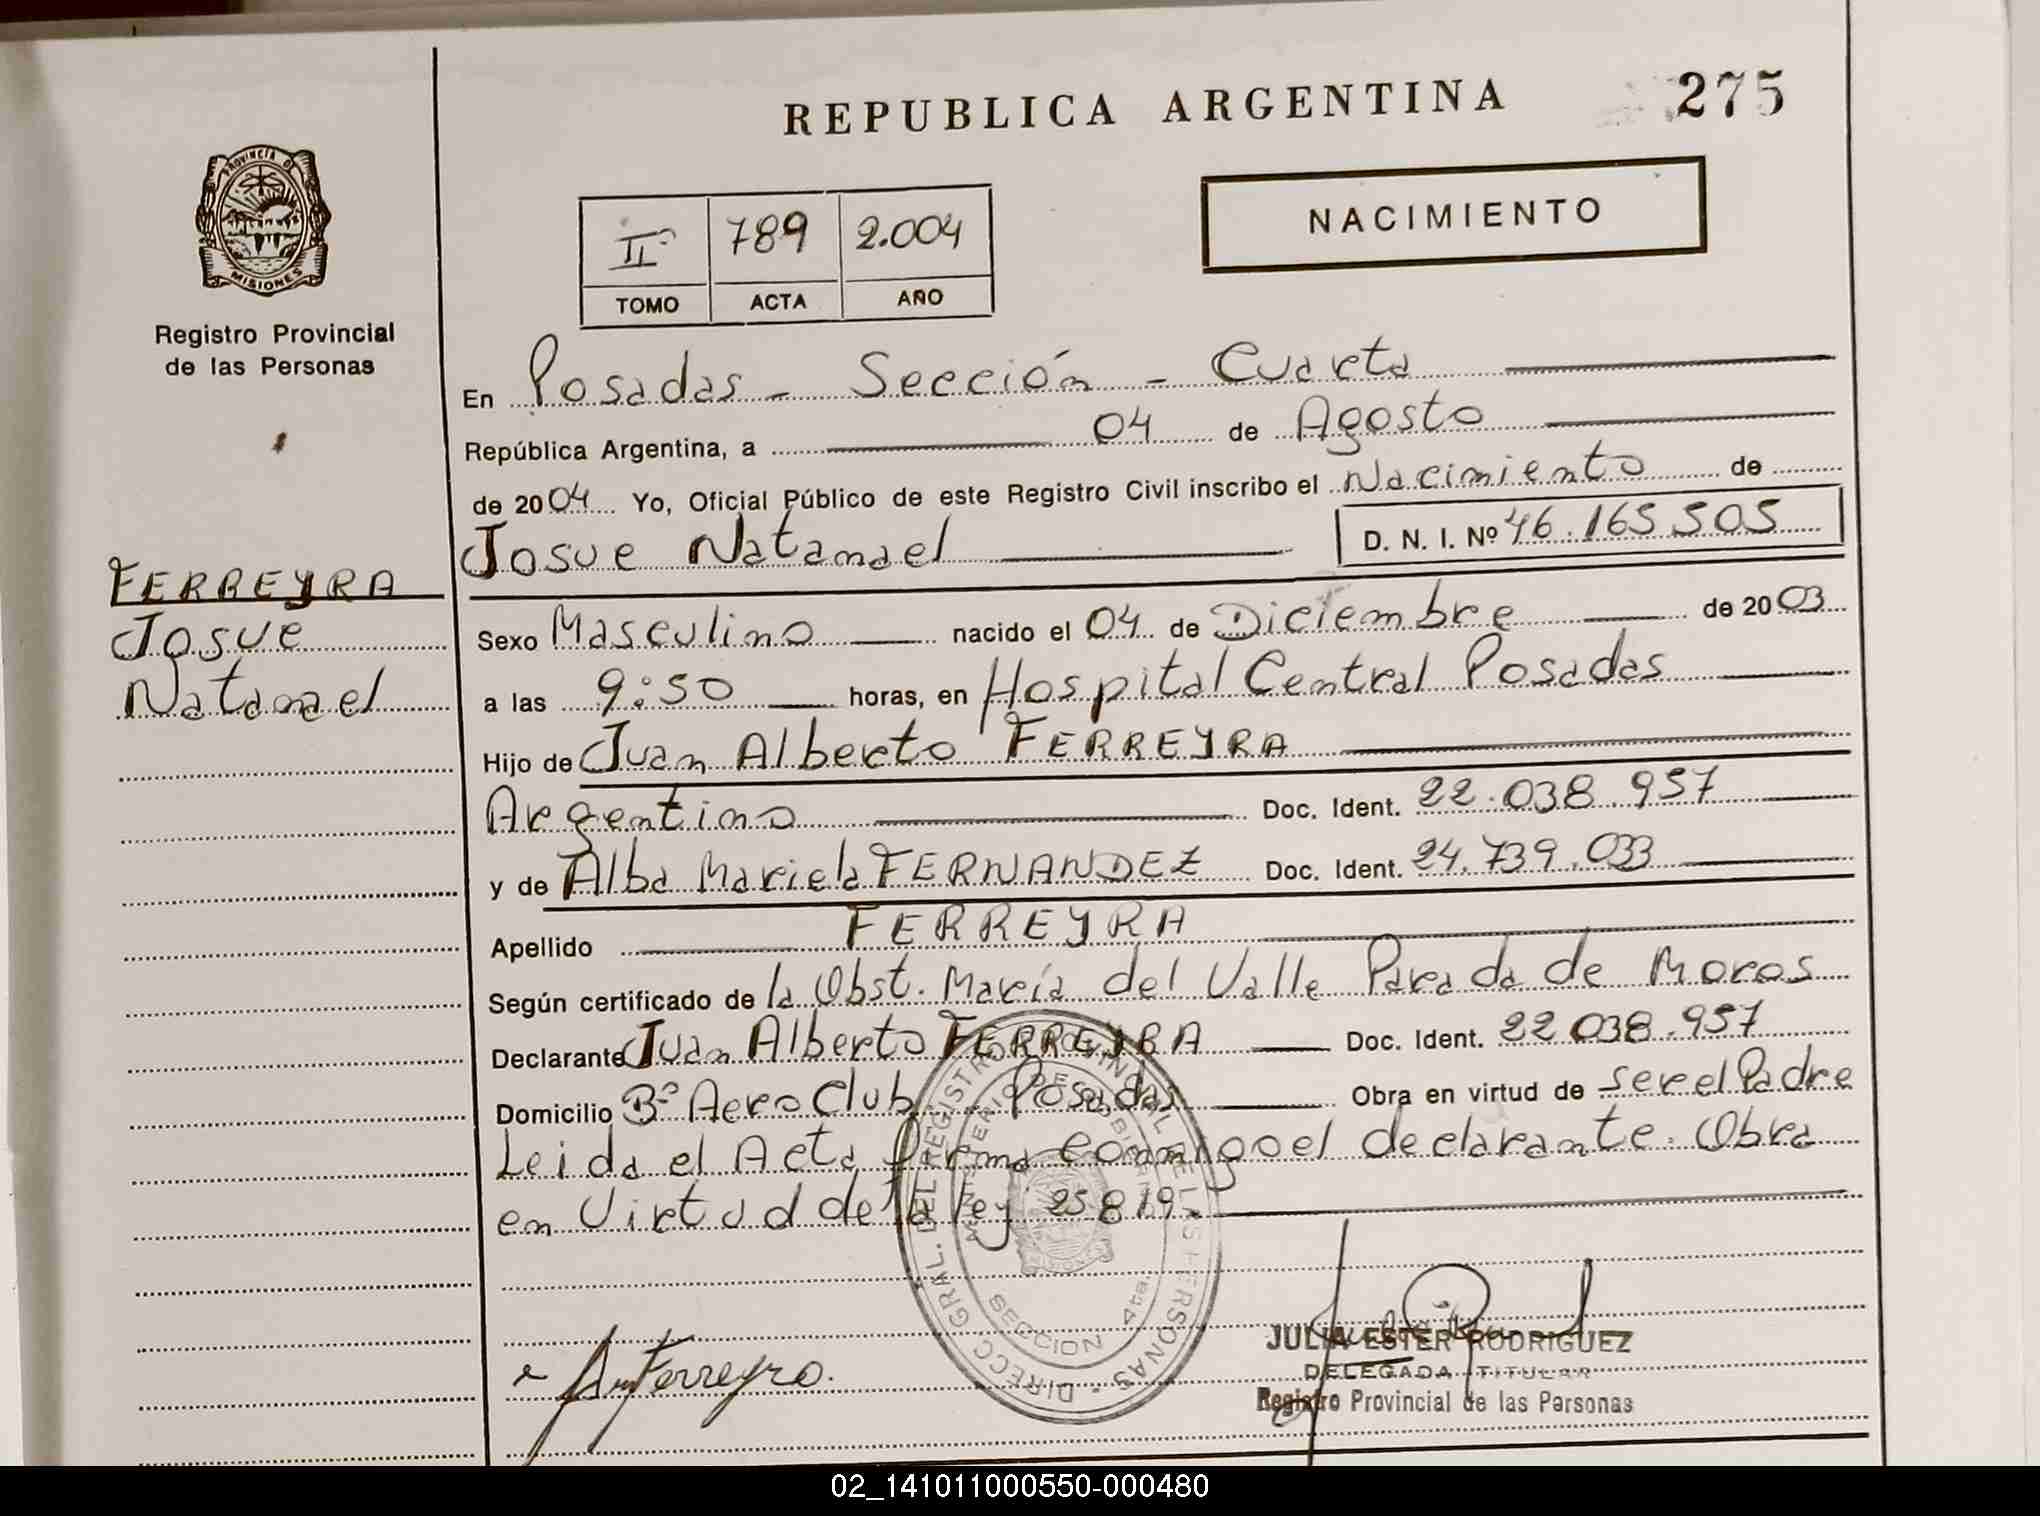 REPUBLICA ARGENTINA
275
PROVINCIA DE
MISIONES
Registro Provincial
de las Personas
IIº 789 2.004
TOMO ACTA AÑO
NACIMIENTO
En Posadas - Sección - Cuarta
República Argentina, a 04 de Agosto
de 2004 Yo, Oficial Público de este Registro Civil inscribo el Nacimiento de
Josue Natanael D. N. I. Nº 46.165.505
FERREYRA
Josue
Natanael
Sexo Masculino nacido el 04 de Diciembre de 2003
a las 9:50 horas, en Hospital Central Posadas
Hijo de Juan Alberto FERREYRA
Argentino Doc. Ident. 22.038.957
y de Alba Mariela FERNANDEZ Doc. Ident. 24.739.033
Apellido FERREYRA
Según certificado de la Obst. María del Valle Parada de Moros
Declarante Juan Alberto FERREYRA Doc. Ident. 22.038.957
Domicilio Bº Aero Club Posadas Obra en virtud de ser el Padre
Leida el Acta firma conmigo el declarante. Obra
en Virtud de la ley 25.819.
DIRECC GRAL. DEL REGISTRO PROVINCIAL DE LAS PERSONAS
SECCION 4ta.
Ferreyra.
JULIA ESTER RODRIGUEZ
DELEGADA TITULAR
Registro Provincial de las Personas
02_141011000550-000480